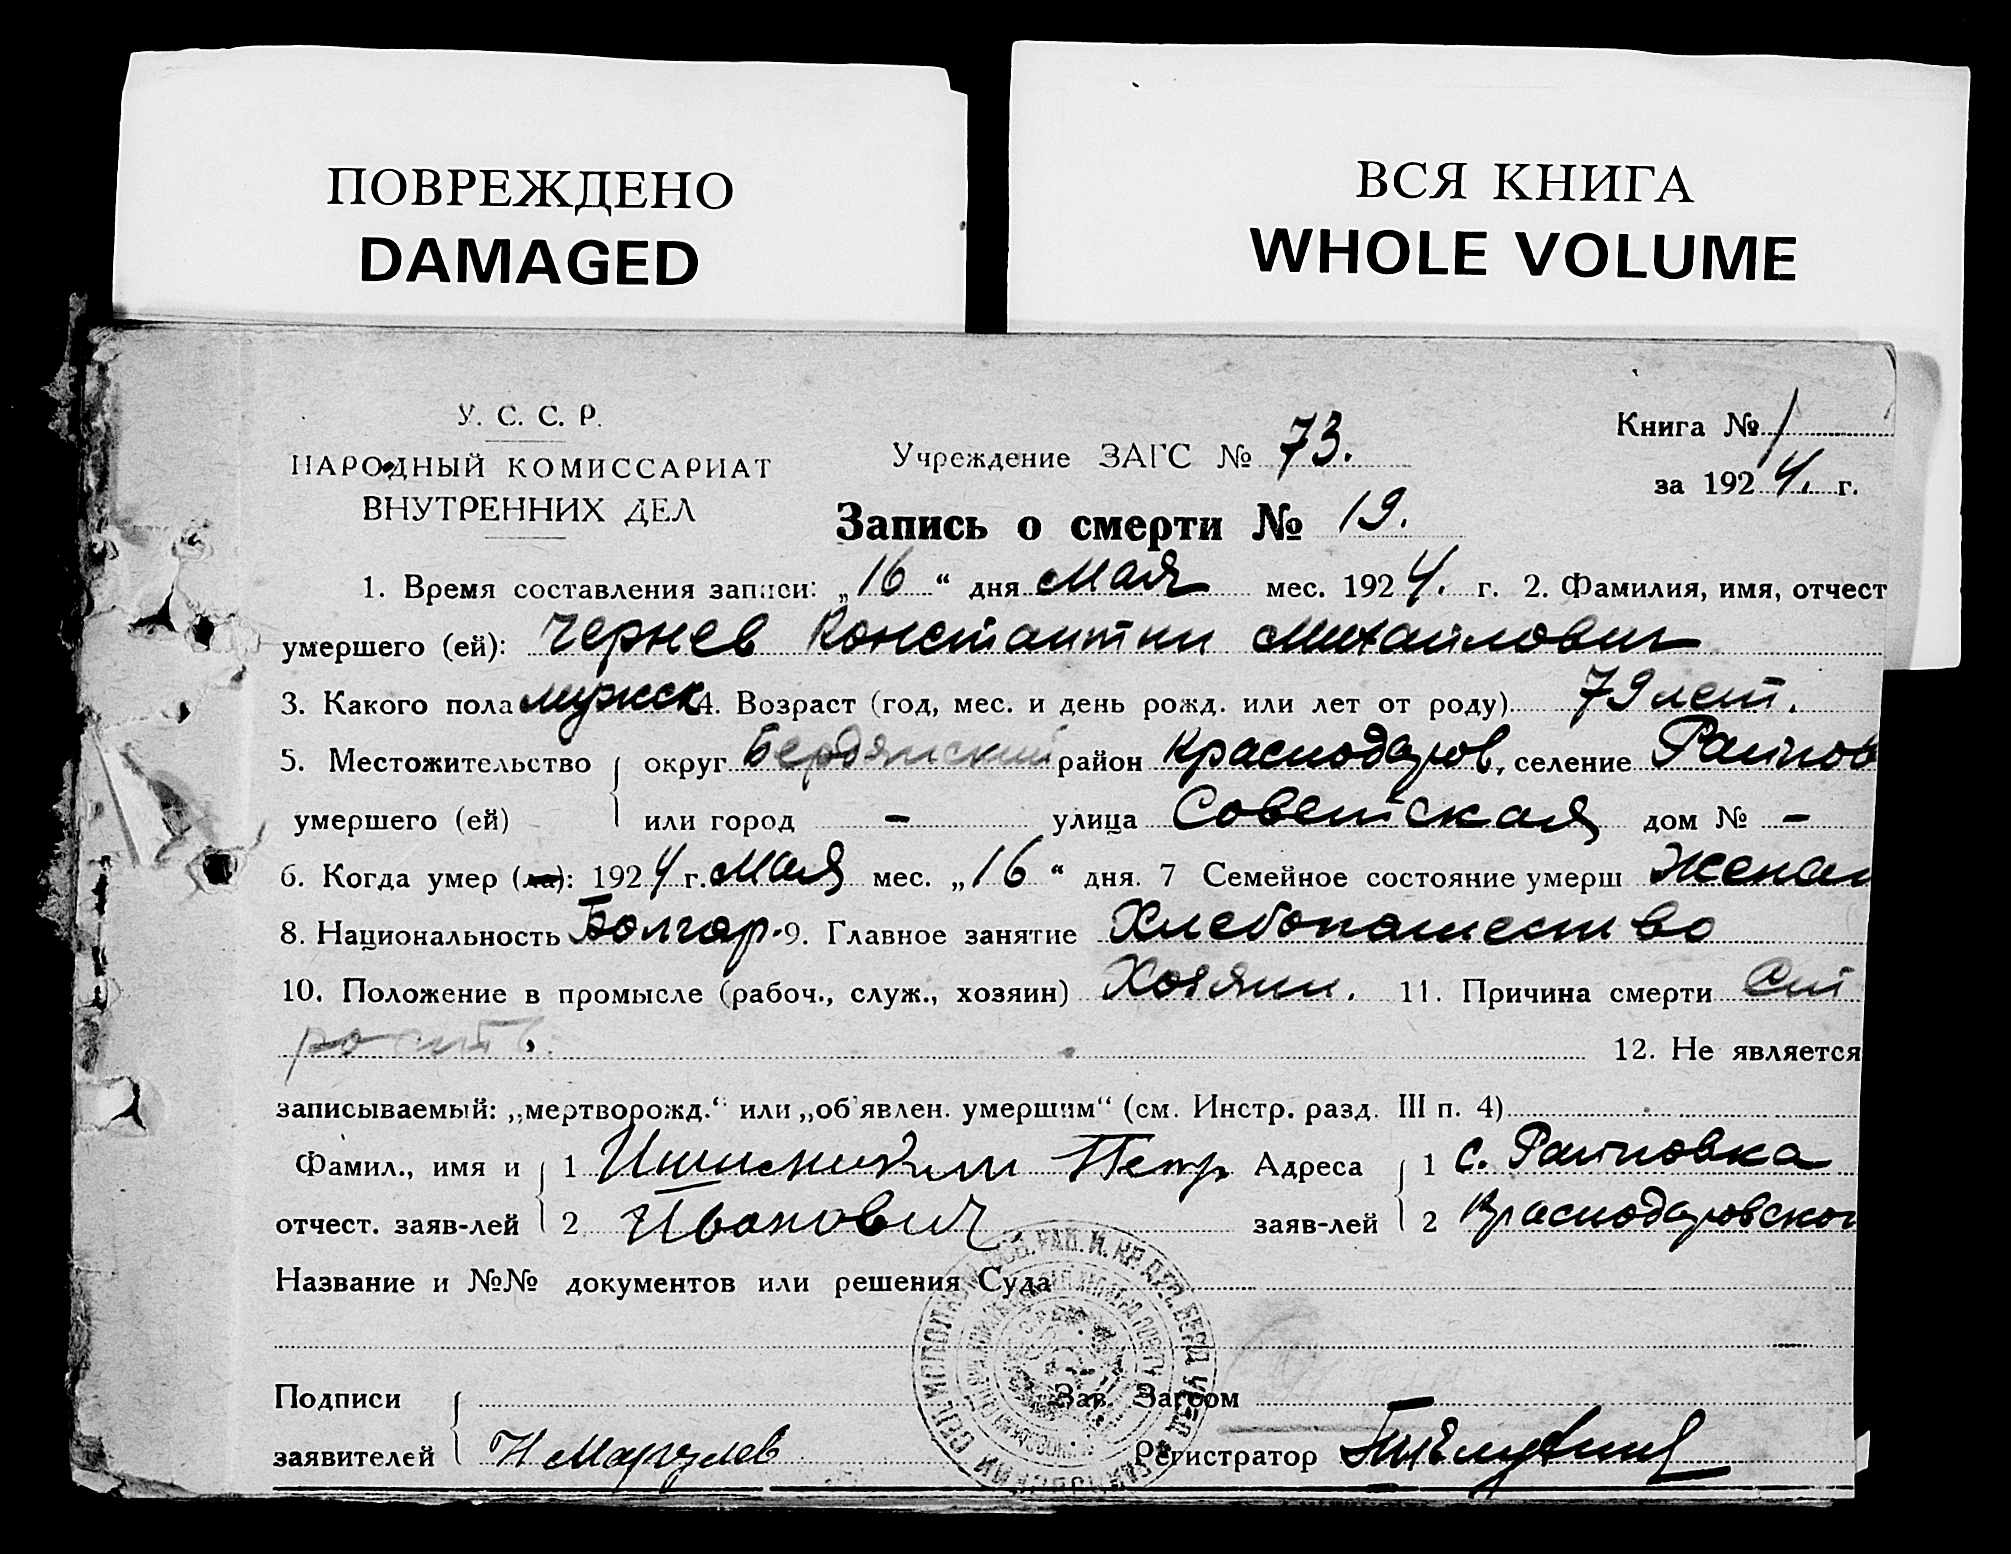 ПОВРЕЖДЕНО
DAMAGED
ВСЯ КНИГА
WHOLE VOLUME
У. С. С. Р.
НАРОДНЫЙ КОМИССАРИАТ
ВНУТРЕННИХ ДЕЛ
Учреждение ЗАГС № 73.
Книга № 1
за 1924. г.
Запись о смерти № 19.
1. Время составления записи: „16“ дня мая мес. 1924. г. 2. Фамилия, имя, отчест
умершего (ей): Чернев Константин Михайлович
3. Какого пола мужск 4. Возраст (год, мес. и день рожд. или лет от роду) 79 лет.
5. Местожительство округ Бердянский район Краснодаров, селение Райнов
умершего (ей) или город - улица Советская дом № -
6. Когда умер (ла): 1924 г. мая мес. „16“ дня. 7 Семейное состояние умерш Женат
8. Национальность Болгар. 9. Главное занятие Хлебопашество
10. Положение в промысле (рабоч., служ., хозяин) Хозяин. 11. Причина смерти Ста
рость. 12. Не является
записываемый: „мертворожд.“ или „об'явлен. умершим“ (см. Инстр. разд. III п. 4)
Фамил., имя и 1 Петр Адреса 1 с. Райновка
отчест. заяв-лей 2 Иванович заяв-лей 2 Краснодаровског
Название и №№ документов или решения Суда
Подписи Зав. Загсом
заявителей Регистратор